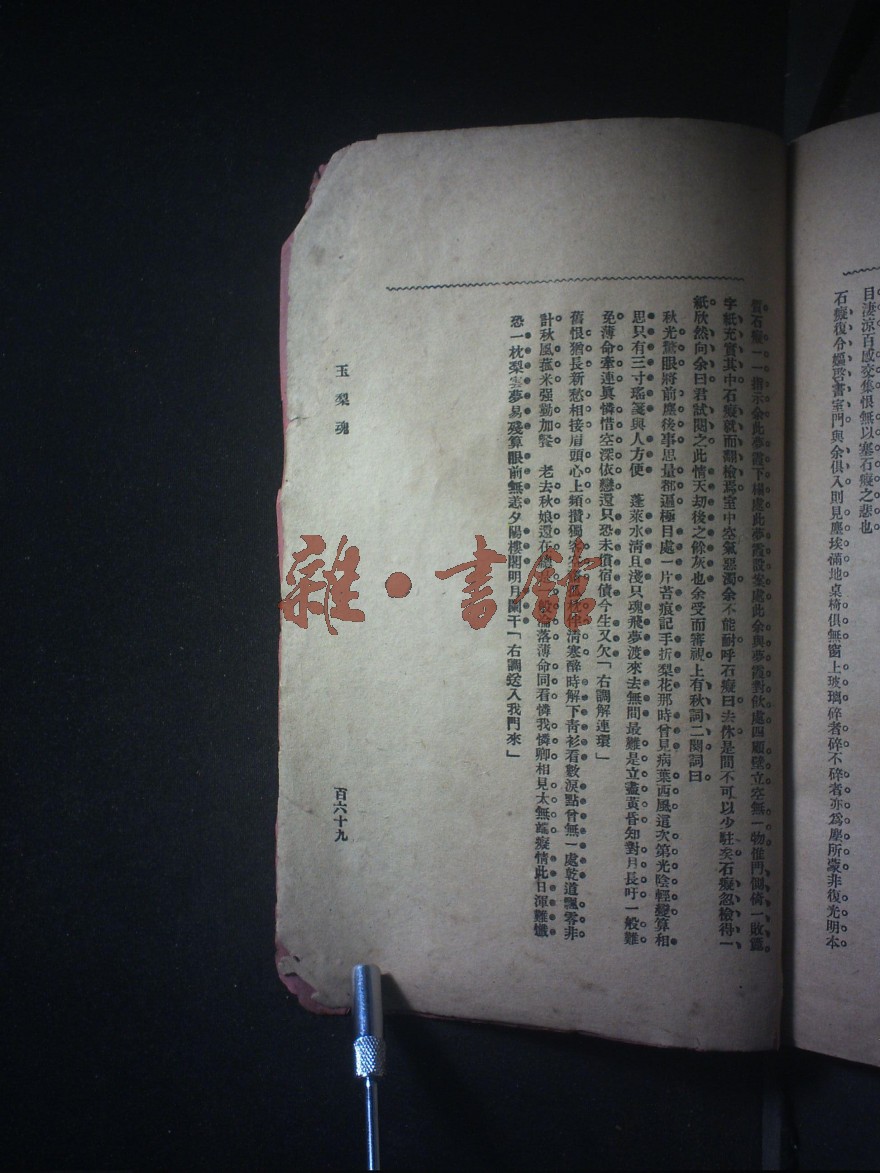 目淒涼百感交集恨無以塞石癡之悲也
石癡復令嫗啓書室門與余俱入則見塵埃滿地桌椅俱無窗上玻璃碎者碎不碎者亦爲塵所蒙非復光明本
質石癡一一指示余此夢霞下榻處此夢霞設案處此余與夢霞對飲處四顧壁立空無一物惟門側倚一敗簏
字紙充實其中石癡就而翻檢焉室中空氣惡濁余不能耐呼石癡曰去休是間不可以少駐矣石癡忽檢得一
紙欣然向余曰君試閱之此情天劫後之餘灰也余受而審視上有秋詞二闋詞曰
秋光驚眼將前塵後事思量都遍極目處一片苔痕記手折梨花那時曾見病葉西風這次第光陰輕變算相
思只有三寸瑤箋與人方便　蓬萊水淸且淺只魂飛夢渡來去無間最難是立盡黃昏知對月長吁一般難
免薄命牽連眞憐惜空深依戀還只恐未償宿債今生又欠「右調解連環」
舊恨猶長新愁相接眉頭心上頻攢獨客空齋孤枕淸寒醉時解下靑衫看數淚點曾無一處乾道飄零非
計秋風菰米强勸加餐　老去秋娘還在落薄命同看憐我憐卿相見太無端癡情此日渾難懺
恐一枕梨雲夢易殘算眼前無恙夕陽樓閣明月闌干「右調送入我門來」
玉梨魂
百六十九
雜·書館